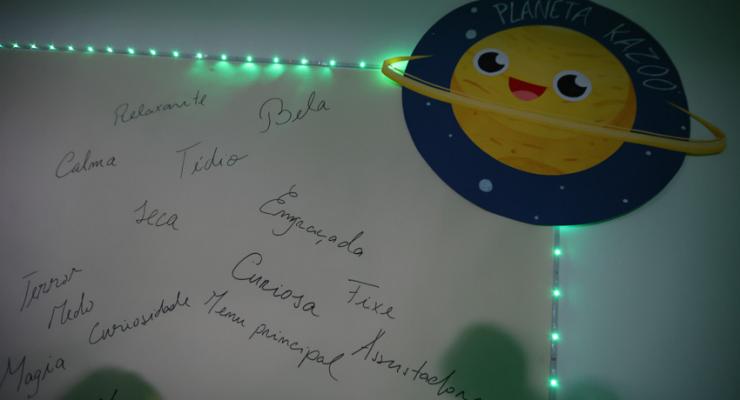 PLANETA KAZOO
Relaxante
Bela
Calma
Tédio
Seca
Engraçada
Terror
Curiosa
Fixe
Medo
Curiosidade
Menu principal
Assustadora
Magia